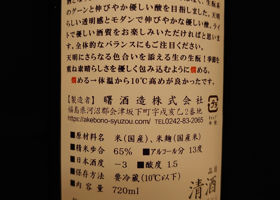 のゲーンと伸びやかな優しい酸を目指しました。瑞々し
い透明感とモダンで伸びやかな優しい味わい、ライ
トで優しい酒質をお楽しみいただければと思い
ます。全体的なバランスにもご注目ください。
天明にさらなる色合いを添える生の生酛!季節を
重ね素晴らしさを優しく包み込むように燗める。
燗める→体温から10℃高めが良かったです。
【製造者】 曙酒造株式会社
福島県河沼郡会津坂下町字戌亥乙2番
https://akebono-syuzou.com/ TEL0242-83-2065
■原材料名 米(国産)、米麹(国産米)
■精米歩合 65% ■アルコール分 13度
■日本酒度 -3 ■酸度 1.5
■保存方法 要冷蔵(10℃以下)
■内容量 720ml
清酒